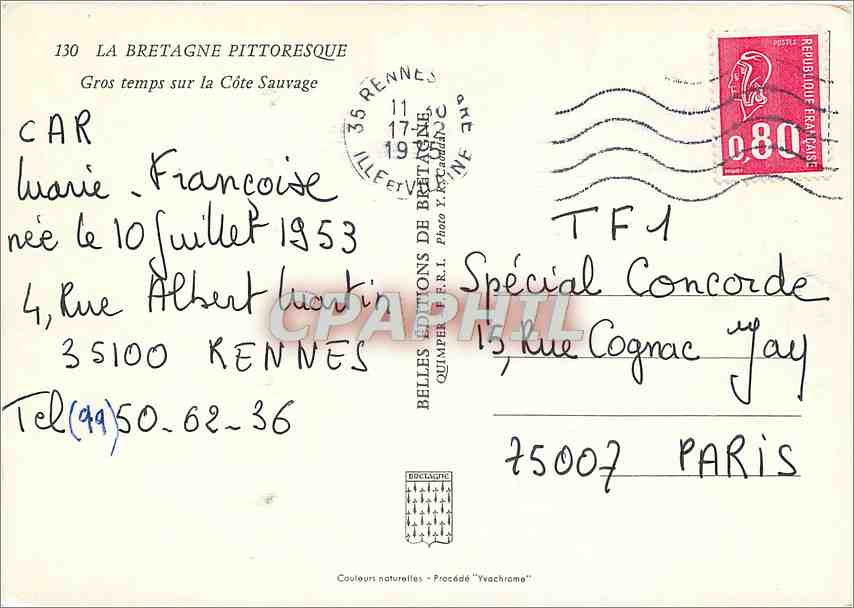 130 LA BRETAGNE PITTORESQUE
Gros temps sur la Côte Sauvage
CAR
Marie - Françoise
née le 10 Juillet 1953
4, Rue Albert Martin
35100 RENNES
Tel (99) 50-62-36
35 RENNES GARE
11 30
17-3
1975
ILLE et VILAINE
BELLES ÉDITIONS DE BRETAGNE
QUIMPER E.F.R.I. Photo Y. R. Caoudal
CPAPHIL
POSTES
REPUBLIQUE FRANÇAISE
0,80
TF1
Spécial Concorde
15, Rue Cognac Jay
75007 PARIS
BRETAGNE
Couleurs naturelles - Procédé "Yvachrome"